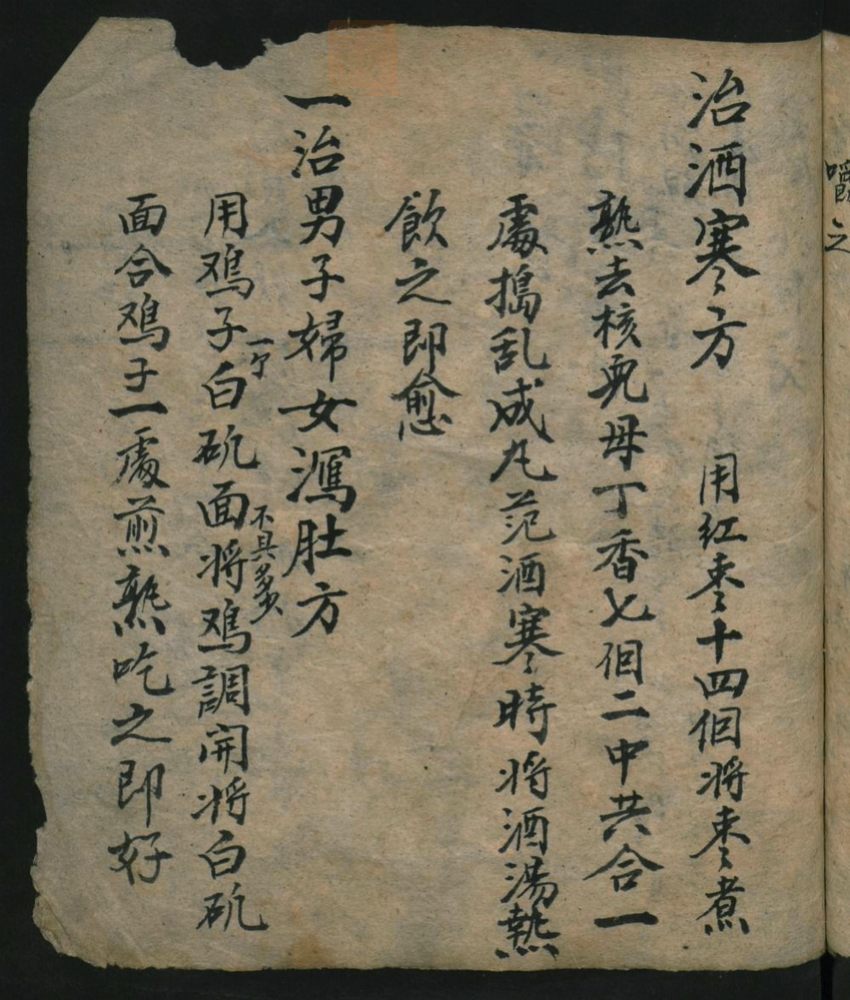 嚼之
治酒寒方 用红枣十四個将枣煮
熟去核 母丁香七個二中共合一
處搗乱成丸范酒寒時将酒湯熱
飲之即愈
一治男子婦女瀉肚方
用鸡子一个白矾面不具多少将鸡調開将白矾
面合鸡子一處煎熟吃之即好